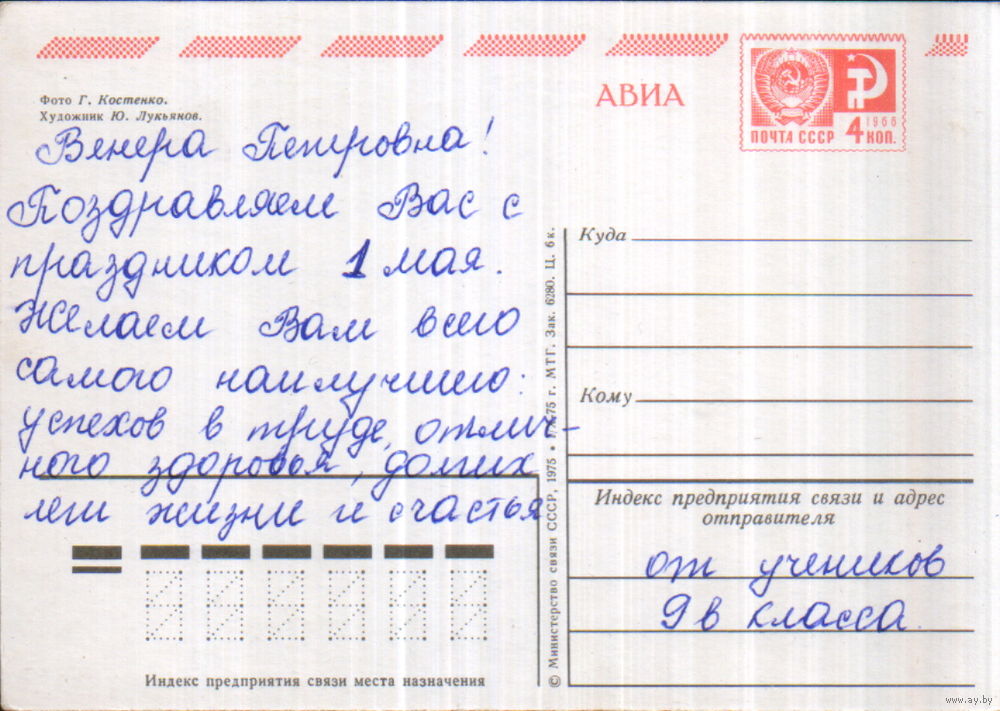 АВИА
1966
ПОЧТА СССР 4 КОП.
Фото Г. Костенко.
Художник Ю. Лукьянов.
Венера Петровна!
Поздравляем Вас с
праздником 1 мая.
Желаем Вам всего
самого наилучшего:
успехов в труде, отлич-
ного здоровья, долгих
лет жизни и счастья
Индекс предприятия связи места назначения
© Министерство связи СССР, 1975 • МТГ. Зак. 6280. Ц. 6 к.
Куда
Кому
Индекс предприятия связи и адрес
отправителя
от учеников
9в класса.
www.ay.by